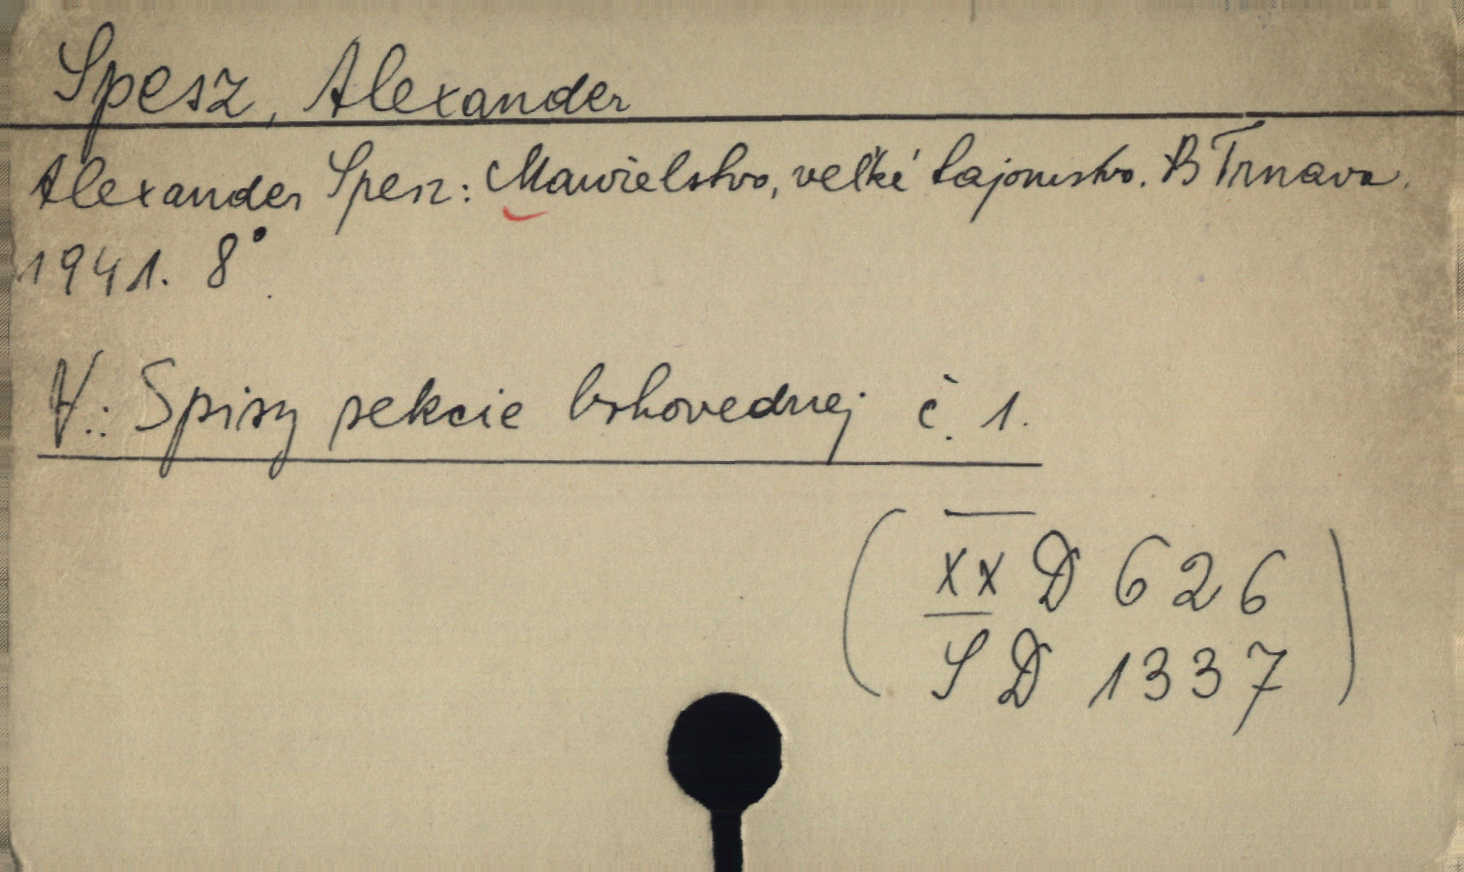 Spesz, Alexander
Alexander Spesz: Manželstvo, veľké tajomstvo. B Trnava.
1941. 8°
V.: Spisy sekcie bohovednej č. 1.
XX D 626
S D 1337